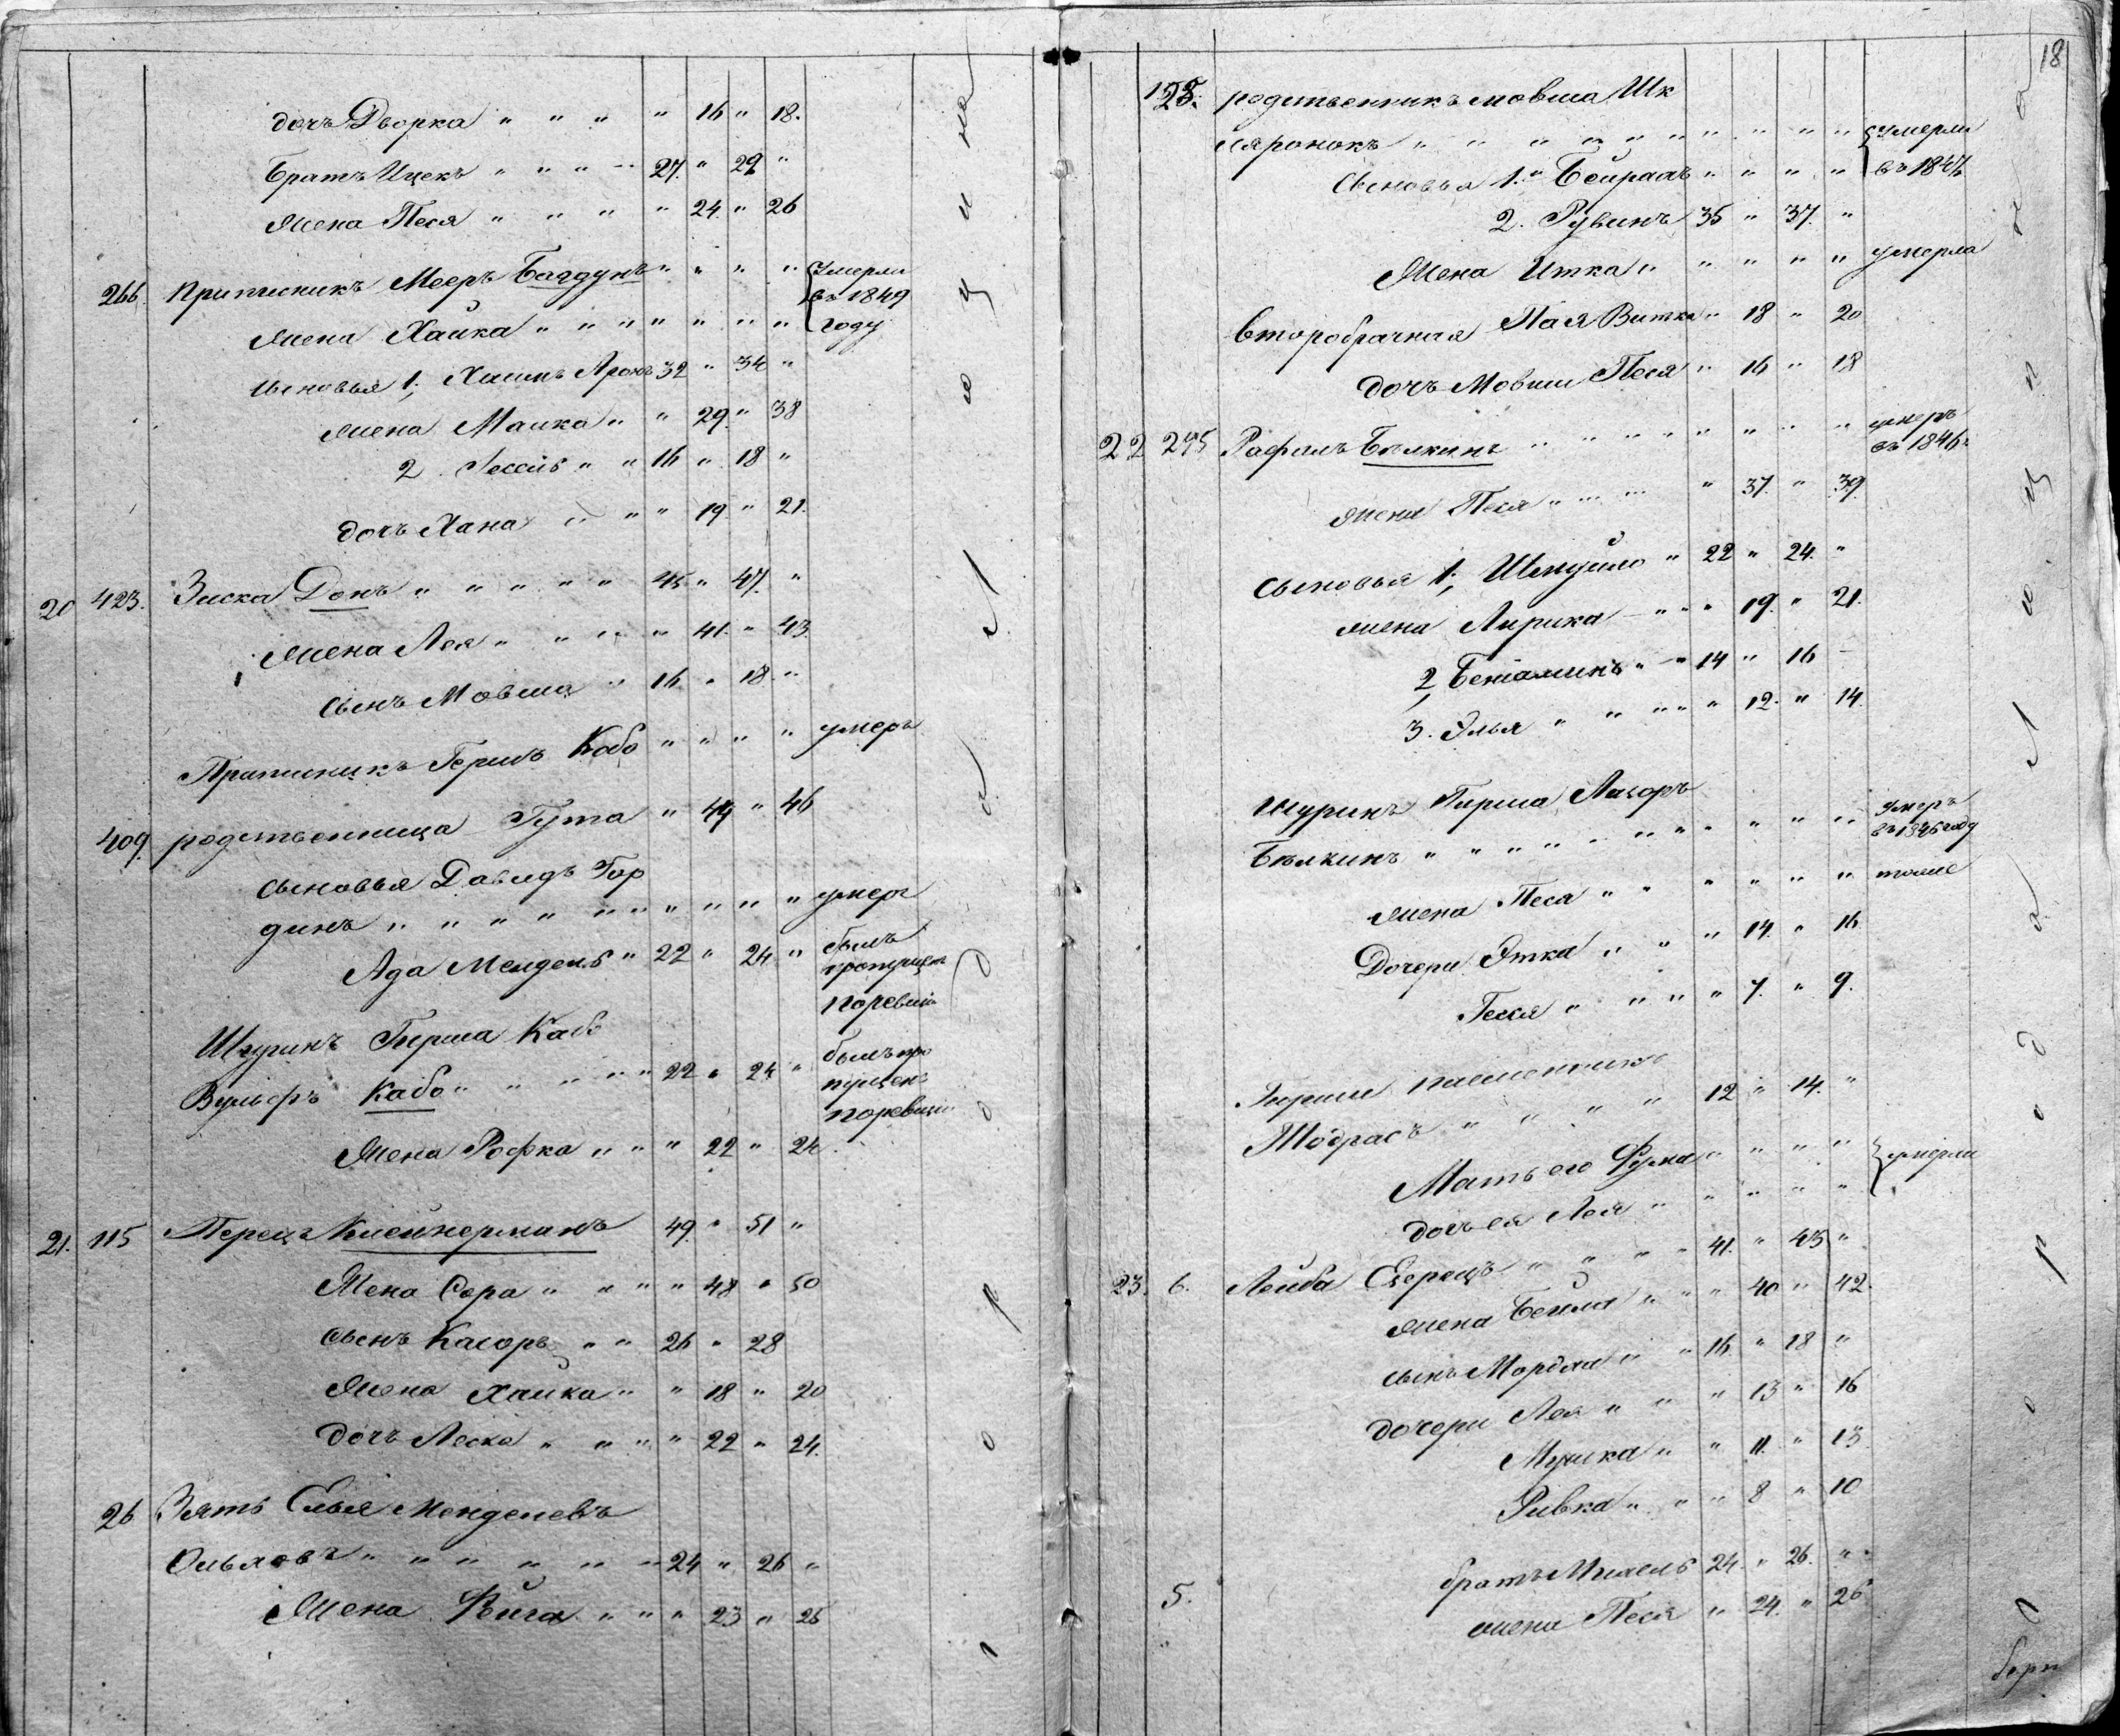 дочь Дворка " " " " 16 " 18.
Братъ Ицекъ " " " 27. " 29 "
Жена Песя " " " " 24 " 26
266. Приписникъ Мееръ Багдунъ " " " " умерли
въ 1849
Жена Хайка " " " " " " " году
Сыновья 1, Хаимъ Аронъ 32 " 34 "
жена Малка " " 29 " 38
2. " " 16 " 18 "
дочь Хана " " " 19 " 21.
20 423. Зиска Донъ " " " " " 45 " 47. "
Жена Лея " " " " 41. " 43
Сынъ Мовша " 16 " 18 "
Приписникъ Гершъ Кабо " " " " умеръ
409. родственница Гута " 44 " 46
Сыновья Давидъ Гор
динъ " " " " " " " " " " умеръ
Ада Мендель " 22 " 24 " былъ
пропущен
поревизіи
Шуринъ Гирша Кабо
Вульфъ Кабо " " " " " 22 " 24 " былъ про
пущенъ
поревизіи
Жена Рофка " " " 22 " 24.
21. 115 Перецъ Клейнерманъ 49. " 51 "
Жена Сора " " " " 48 " 50
Сынъ " " 26 " 28
Жена Хайка " " 18 " 20
дочь Леска " " " " 22 " 24.
26 Зять Елья Менделевъ
Ольховъ " " " " " " 24 " 26 "
Жена Вига " " " 23 " 25
18
125. родственникъ Мовша Шк
ляронокъ " " " " " " " " " " умерли
Сыновья 1. " Бейрахъ " " " " въ 1847
2. Рувинъ 35 " 37. "
Жена Итка " " " " " умерла
Второбрачная Пая Витка " 18 " 20
дочь Мовши Песя " 16 " 18
22 275 Рафалъ Бѣлкинъ " " " " " " " " " умеръ
въ 1846
Жена Песя " " " " 37. " 39.
Сыновья 1, Шмуйло " 22 " 24. "
жена Лирика " " " 19. " 21.
2, Беніаминъ " " 14 " 16
3. Элья " " " " " 12. " 14.
Шуринъ Гирша Лазоръ
Бѣлкинъ " " " " " " " " " " умеръ
въ 1846 году
жена Песя " " " " " " тоже
Дочери Этка " " " 14. " 16
Геся " " " " " 7. " 9.
Гирши племенникъ
Тодрасъ " " " " 12 " 14. "
Мать его Фрума " " " " умерли
дочь ея Лея " " " " "
23. 6. Лейба " " " " 41. " 43 "
жена Бейла " " " 40 " 42.
сынъ Мордхи " " 16 " 18 "
дочери Лея " " " 13 " 16
Мушка " " 11. " 13
Ривка " " " 8 " 10
5. братъ Михель 24. " 26. "
жена Песя " 24. " 26